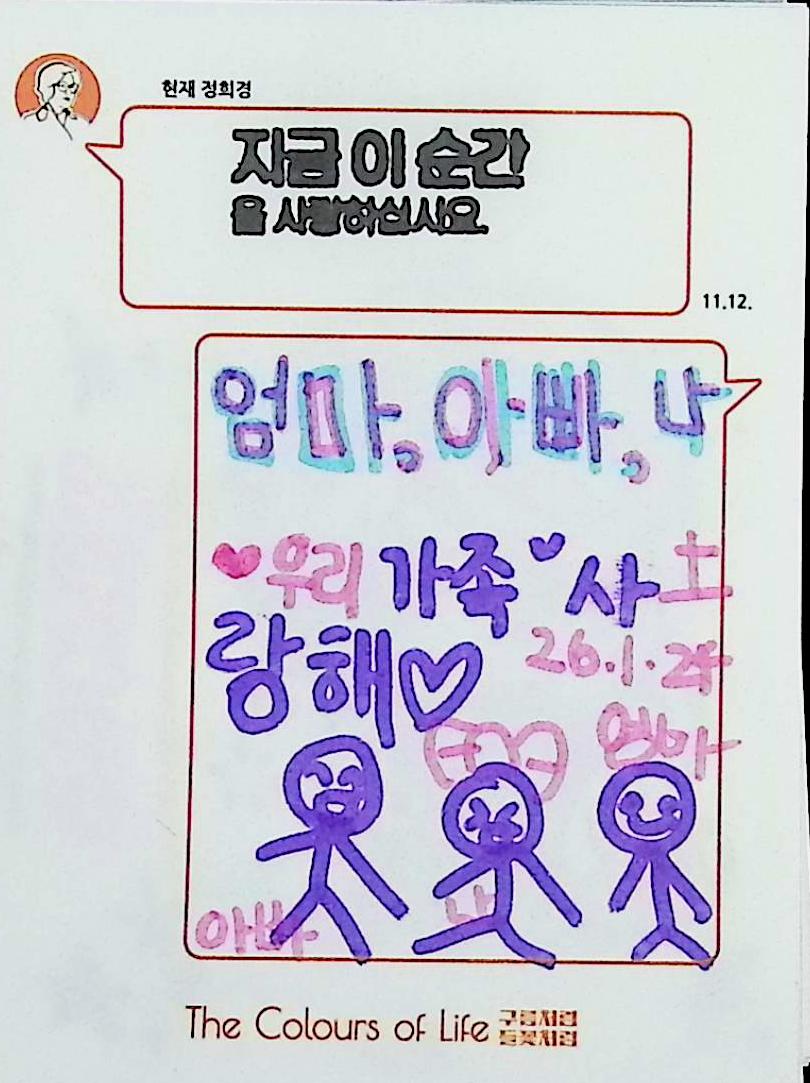 현재 정희경
지금 이 순간
을 사랑하십시오.
11.12.
엄마, 아빠, 나
♥우리 가족♥사土
랑해♡ 26.1.24
엄마
아빠 나
The Colours of Life 구름처럼
들꽃처럼